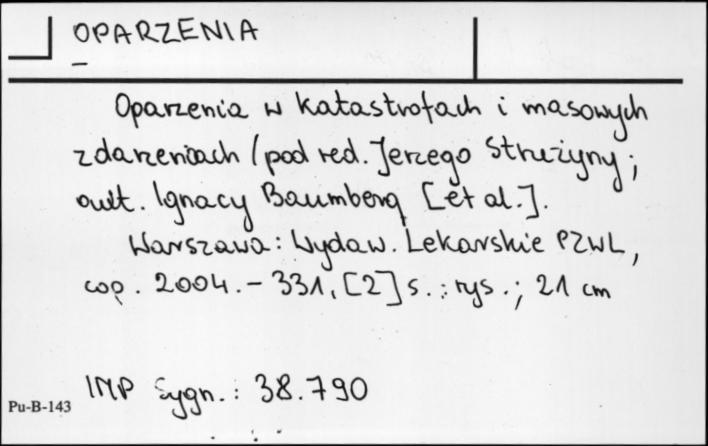 OPARZENIA
–
Oparzenia w katastrofach i masowych
zdarzeniach / pod red. Jerzego Strużyny ;
aut. Ignacy Baumberg [et al.].
Warszawa : Wydaw. Lekarskie PZWL,
cop. 2004. – 331, [2] s. : rys. ; 21 cm
IMP Sygn. : 38.790
Pu-B-143